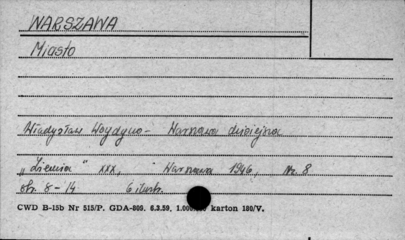 WARSZAWA
Miasto
Władysław Woydyno - Warszawa dzisiejsza
„Ziemia" XXX, Warszawa 1946, Nr. 8
str. 8-14 6 ilustr.
CWD B-15b Nr 515/P. GDA-809. 6.3.59. karton 180/V.